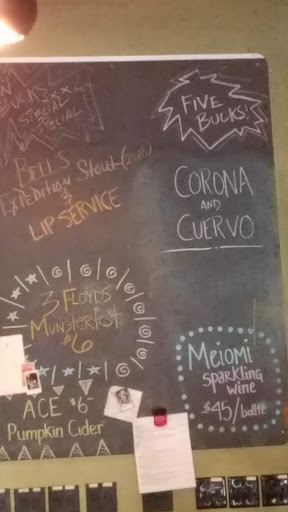 BUCKS
SPECIAL
SPECIAL
BELL'S
EXPEDITION Stout (2013)
&
LIP SERVICE
3 FLOYDS
MUNSTERFEST
$6
ACE $6
Pumpkin Cider
FIVE
BUCKS!
CORONA
AND
CUERVO
MEIOMI
SPARKLING
wine
$45/bottle